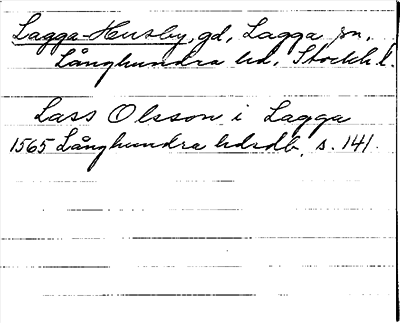 Lagga-Husby, gd, Lagga sn,
Långhundra hd, Stockh. l.
Lass Olsson i Lagga
1565 Långhundra hdsdb, s. 141.